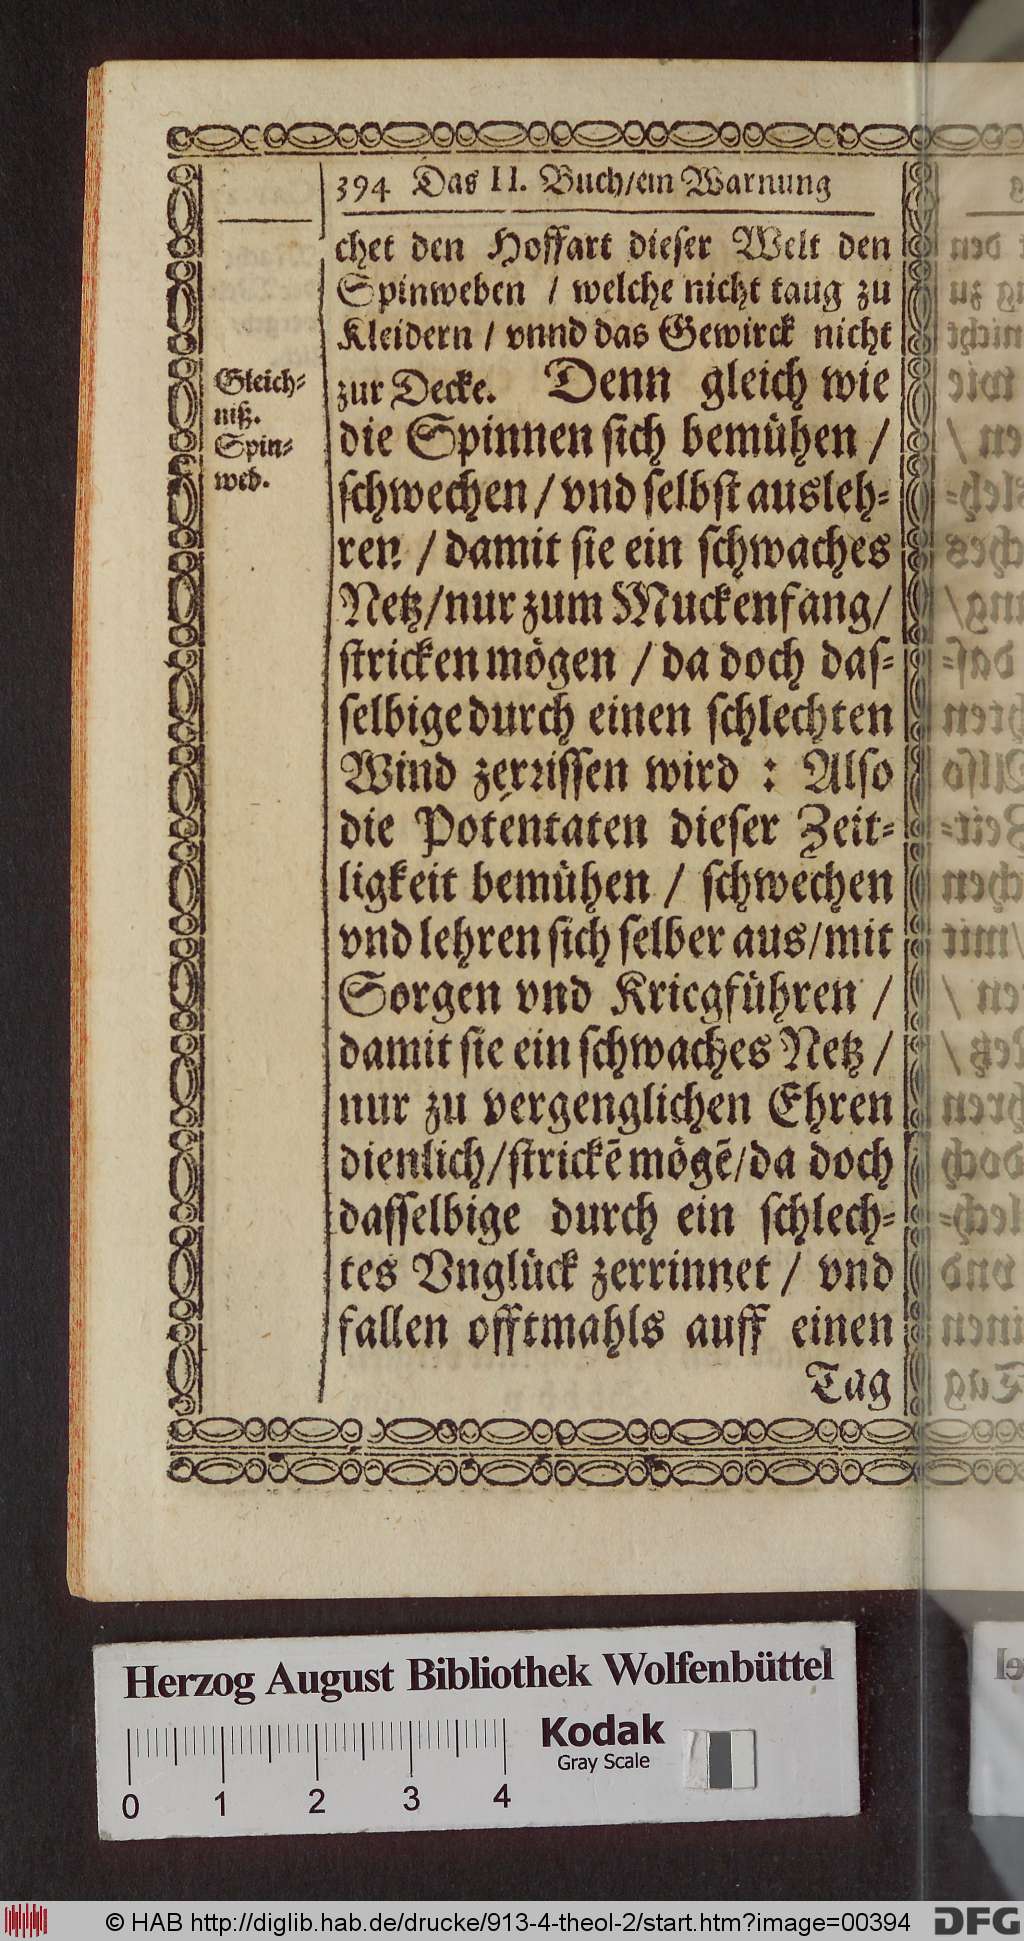 394 Das II. Buch/ein Warnung
chet den Hoffart dieser Welt den
Spinweben / welche nicht taug zu
Kleidern / vnnd das Gewirck nicht
zur Decke. Denn gleich wie
die Spinnen sich bemühen /
schwechen / vnd selbst ausleh-
ren / damit sie ein schwaches
Netz/nur zum Muckenfang/
stricken mögen / da doch das-
selbige durch einen schlechten
Wind zerrissen wird : Also
die Potentaten dieser Zeit-
ligkeit bemühen / schwechen
vnd lehren sich selber aus/mit
Sorgen vnd Kriegführen /
damit sie ein schwaches Netz /
nur zu vergenglichen Ehren
dienlich/strickē mögē/da doch
dasselbige durch ein schlech-
tes Vnglück zerrinnet / vnd
fallen offtmahls auff einen
Tag
Gleich-
niß.
Spin-
web.
Herzog August Bibliothek Wolfenbüttel
Kodak
Gray Scale
0 1 2 3 4
© HAB http://diglib.hab.de/drucke/913-4-theol-2/start.htm?image=00394
DFG